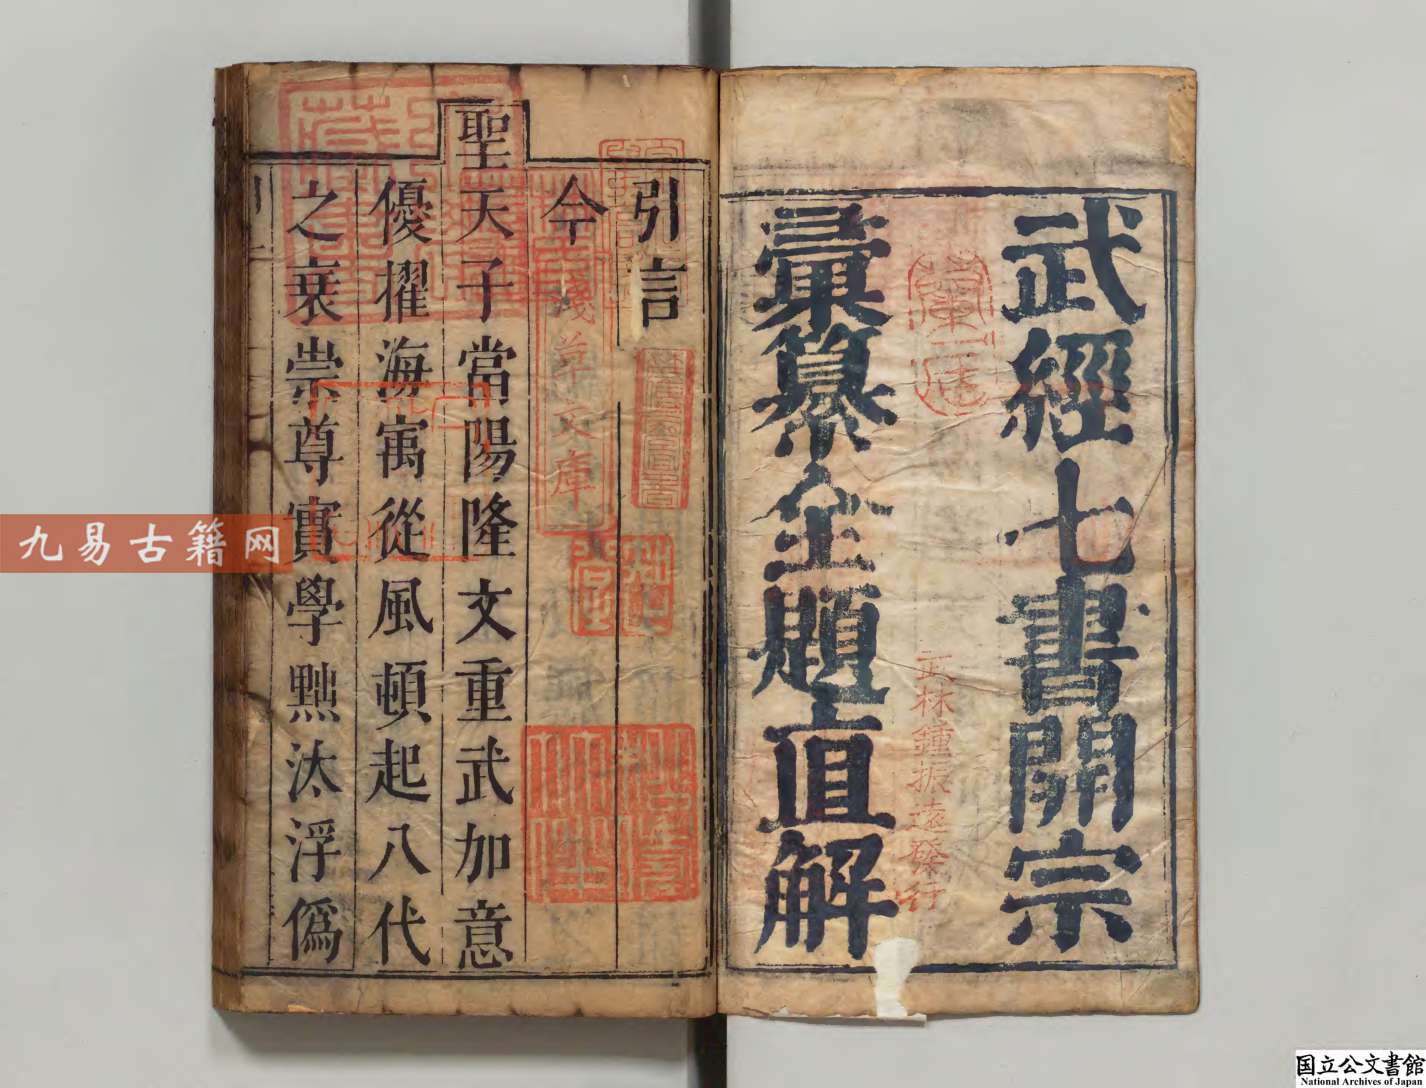 武經七書開宗
武林鍾振遠發行
彙纂全題直解
引言
今
聖天子當陽隆文重武加意
優擢海寓從風頓起八代
之衰崇尊實學黜汰浮僞
淺草文庫
九易古籍网
国立公文書館
National Archives of Japan